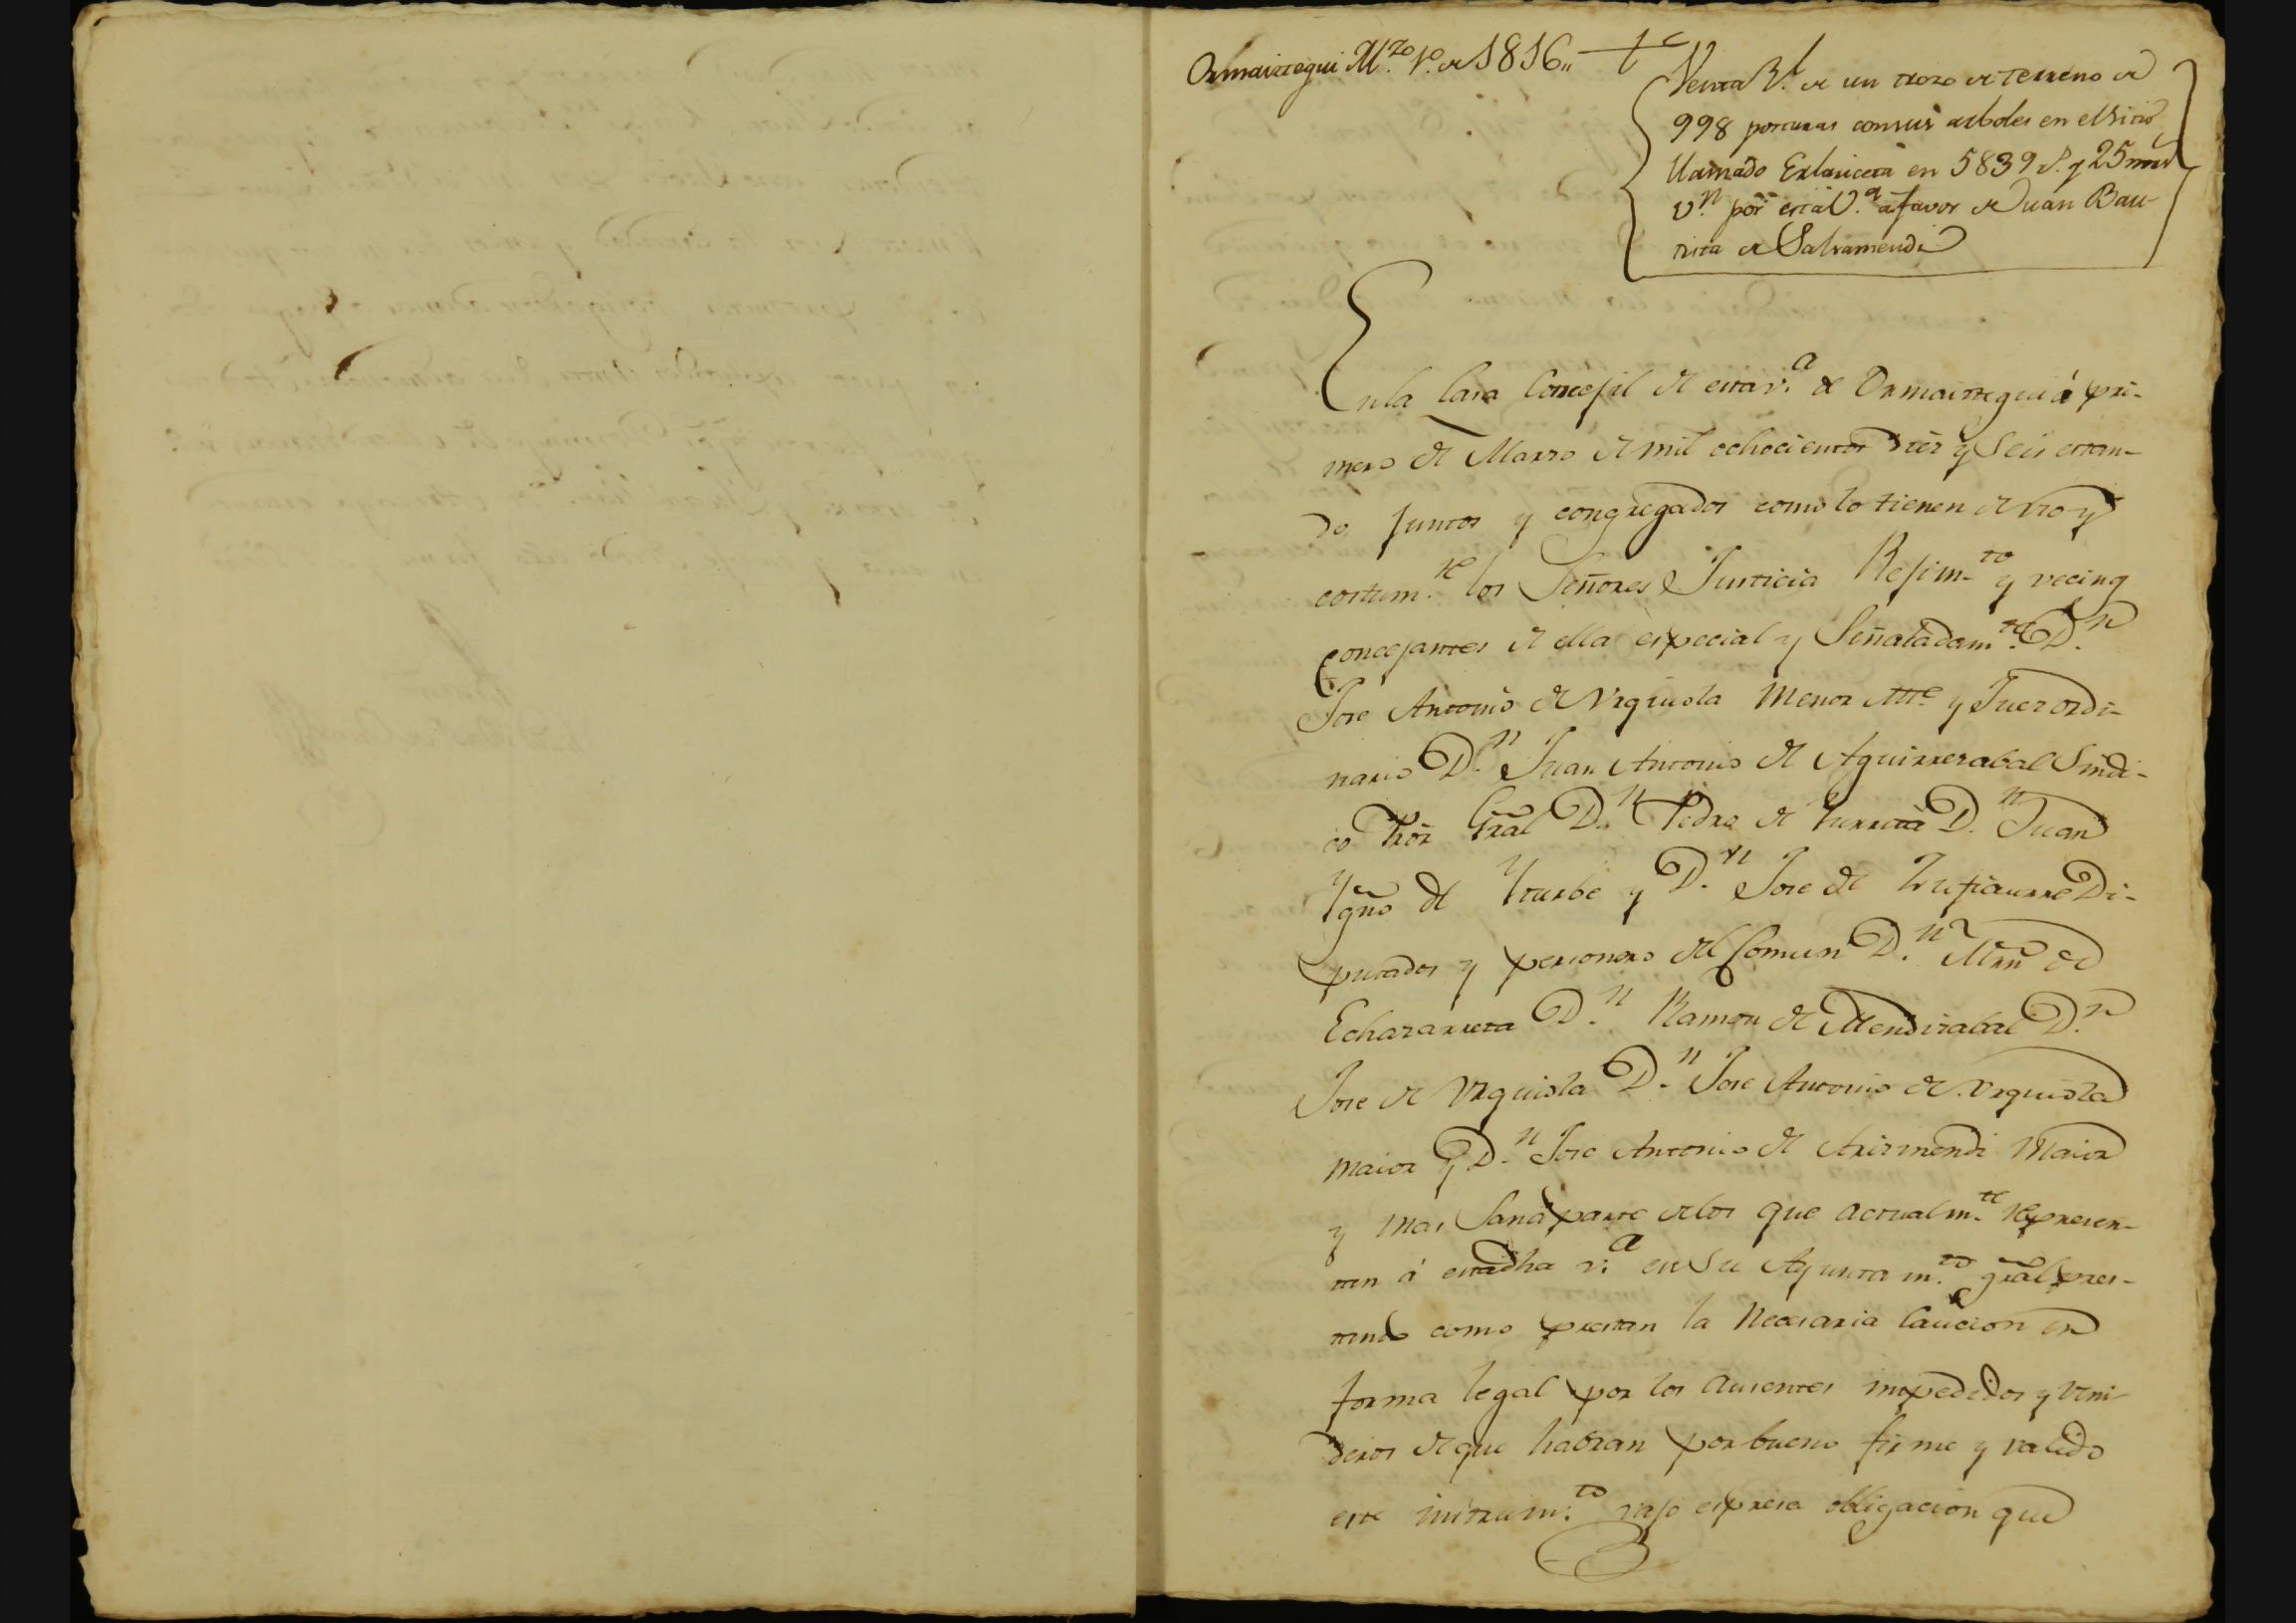 Ormaiztegui M.zo 1.o de 1816,,
Venta Rl. de un trozo de terreno de
998 posturas con sus arboles en el sitio
llamado Exlauceta en 5839 rs. y 25 mrs
v.n por esta V.a a favor de Juan Bau-
tista de Salsamendi
En la Casa Concejil de esta v.a de Ormaiztegui á pri-
mero de Marzo de mil ochocientos diez y seis estan-
do juntos y congregados como lo tienen de uso y
costum.re los Señores Justicia Rejim.to y vecinos
concejantes de ella especial y Señaladam.te D.n
Jose Antonio de Urquiola menor Alle y Juez ordi-
nario D.n Juan Antonio de Aguirrezabal Sindi-
co Pror Gral D.n Pedro de Iurrita D.n Juan
Ygno de Yturbe y D.n Jose de Insaurre Di-
putados y personero del Comun D.n Mrn de
Echazarreta D.n Ramon de Mendizabal D.n
Jose de Urquiola D.n Jose Antonio de Urquiola
maior y D.n Jose Antonio de Arizmendi Maior
y mas Sana parte de los que actualm.te represen-
tan á esta dha v.a en Su Ayuntam.to gral pres-
tando como prestan la Necesaria Caucion en
forma legal por los Ausentes impedidos y veni-
deros de que habran por bueno firme y valido
este instrum.to vajo espresa obligacion que